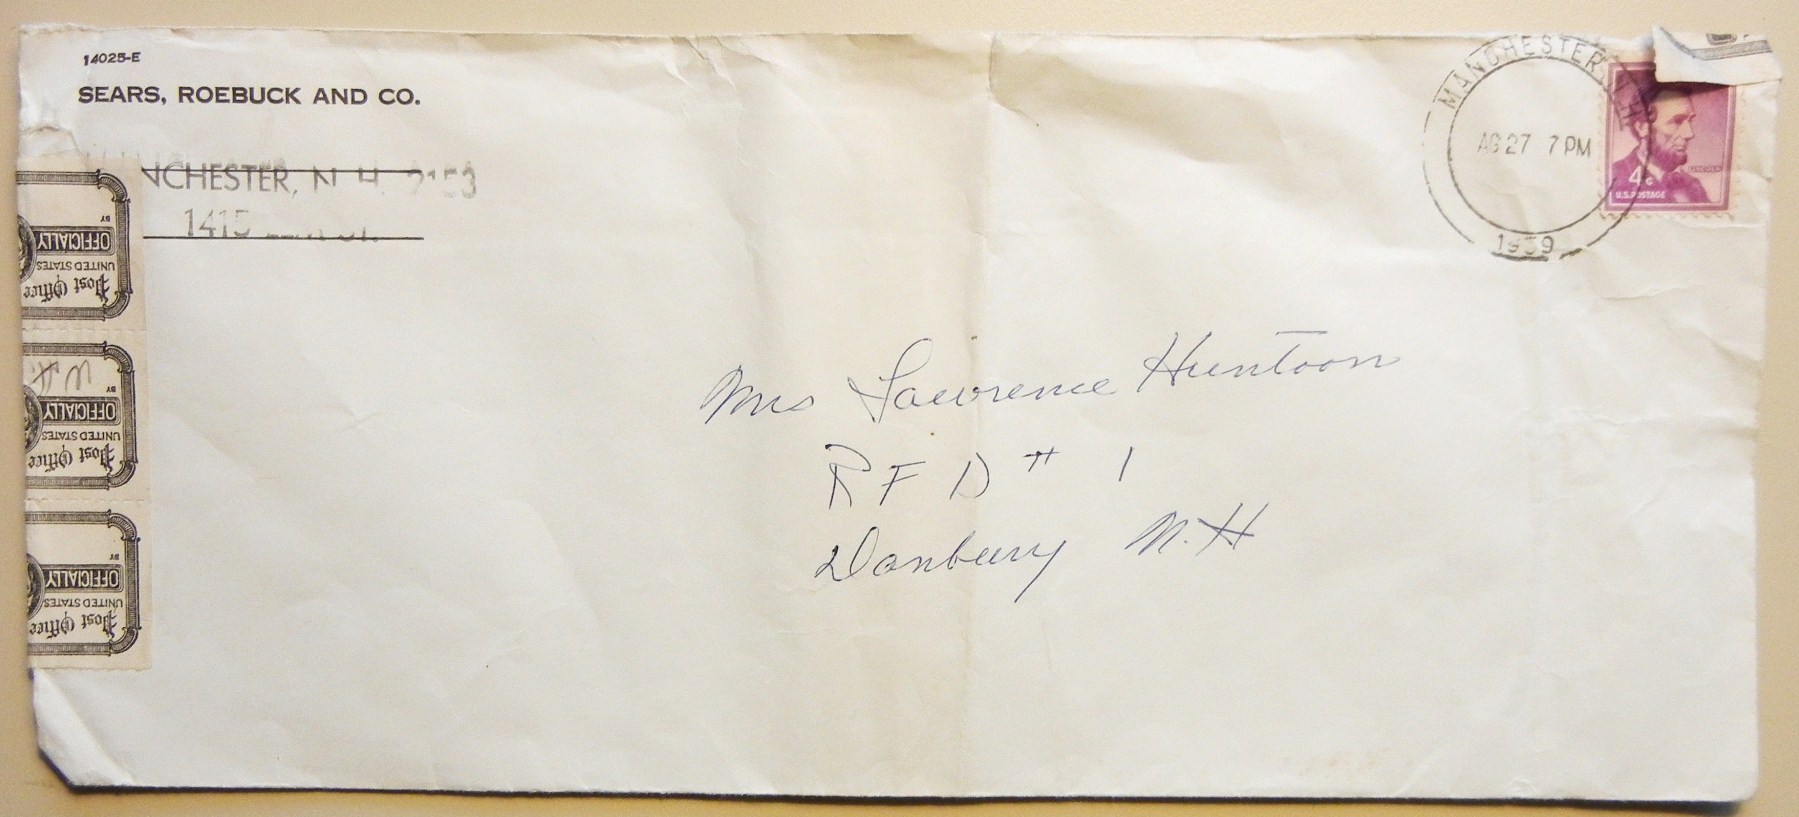 14025-E
SEARS, ROEBUCK AND CO.
NCHESTER, N. H. 2153
1415 ST.
MANCHESTER
AG 27 7 PM
1959
LINCOLN
4¢
U.S. POSTAGE
Mrs Lawrence Huntoon
RFD # 1
Danbury N.H
BY
OFFICIALLY
UNITED STATES
Post Office
BY
OFFICIALLY
UNITED STATES
Post Office
BY
OFFICIALLY
UNITED STATES
Post Office